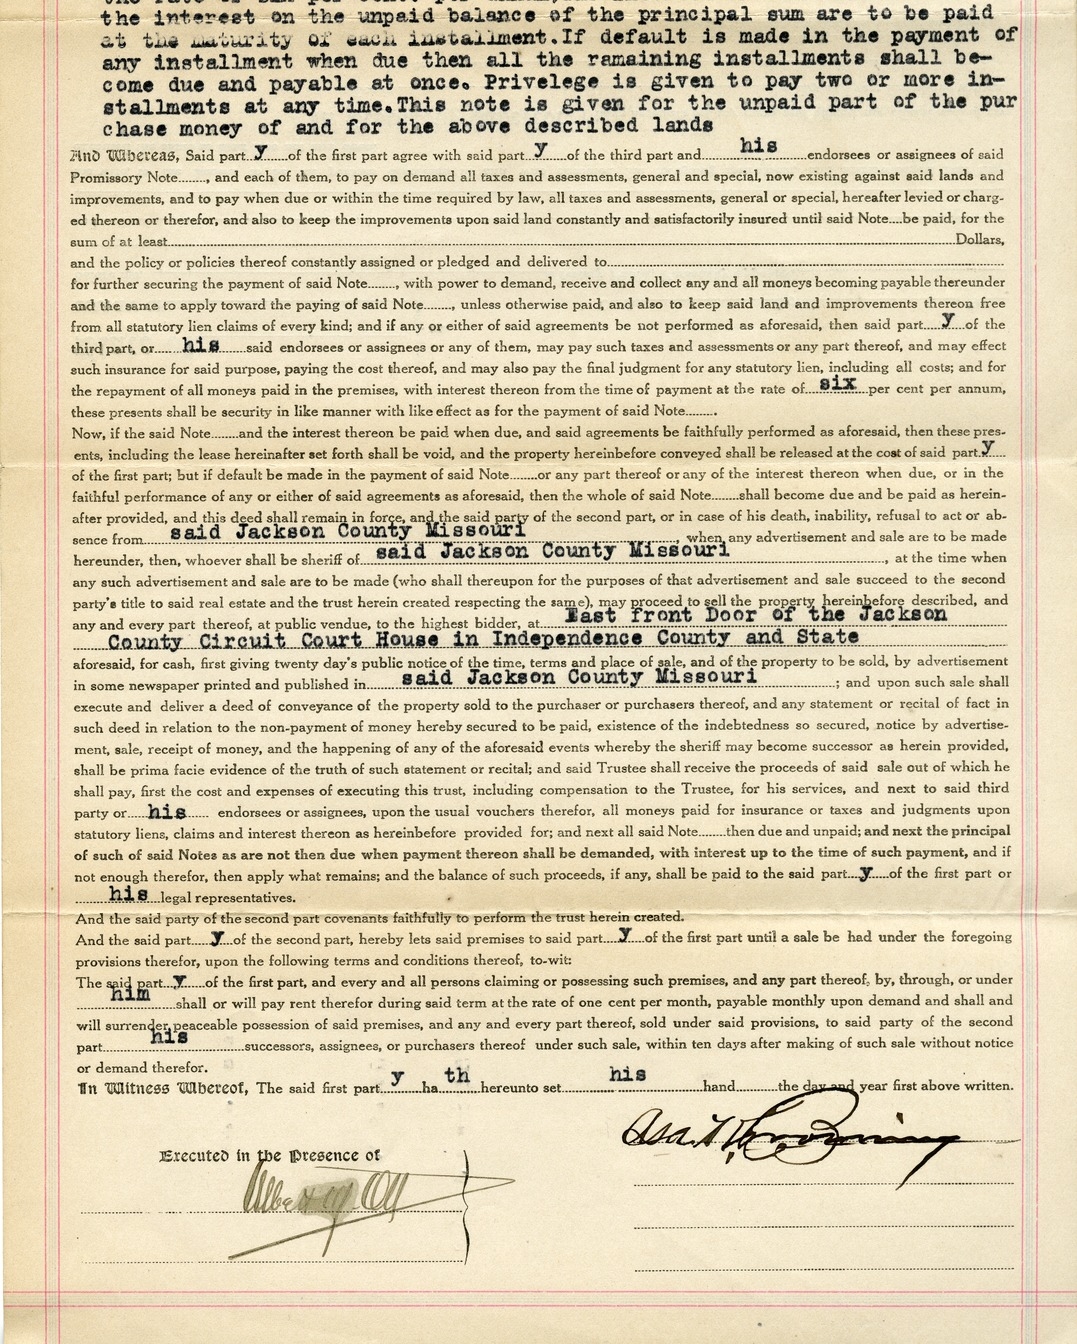 the interest on the unpaid balance of the principal sum are to be paid
at the maturity of each installment.If default is made in the payment of
any installment when due then all the ramaining installments shall be-
come due and payable at once. Privelege is given to pay two or more in-
stallments at any time.This note is given for the unpaid part of the pur
chase money of and for the above described lands
And Whereas, Said part..y......of the first part agree with said part..y......of the third part and........his........endorsees or assignees of said
Promissory Note........, and each of them, to pay on demand all taxes and assessments, general and special, now existing against said lands and
improvements, and to pay when due or within the time required by law, all taxes and assessments, general or special, hereafter levied or charg-
ed thereon or therefor, and also to keep the improvements upon said land constantly and satisfactorily insured until said Note....be paid, for the
sum of at least........Dollars,
and the policy or policies thereof constantly assigned or pledged and delivered to........
for further securing the payment of said Note........, with power to demand, receive and collect any and all moneys becoming payable thereunder
and the same to apply toward the paying of said Note........, unless otherwise paid, and also to keep said land and improvements thereon free
from all statutory lien claims of every kind; and if any or either of said agreements be not performed as aforesaid, then said part....y...of the
third part, or......his.......said endorsees or assignees or any of them, may pay such taxes and assessments or any part thereof, and may effect
such insurance for said purpose, paying the cost thereof, and may also pay the final judgment for any statutory lien, including all costs; and for
the repayment of all moneys paid in the premises, with interest thereon from the time of payment at the rate of...six...per cent per annum,
these presents shall be security in like manner with like effect as for the payment of said Note........
Now, if the said Note........and the interest thereon be paid when due, and said agreements be faithfully performed as aforesaid, then these pres-
ents, including the lease hereinafter set forth shall be void, and the property hereinbefore conveyed shall be released at the cost of said part.y....
of the first part; but if default be made in the payment of said Note........or any part thereof or any of the interest thereon when due, or in the
faithful performance of any or either of said agreements as aforesaid, then the whole of said Note........shall become due and be paid as herein-
after provided, and this deed shall remain in force, and the said party of the second part, or in case of his death, inability, refusal to act or ab-
sence from......said Jackson County Missouri........, when any advertisement and sale are to be made
hereunder, then, whoever shall be sheriff of....said Jackson County Missouri........, at the time when
any such advertisement and sale are to be made (who shall thereupon for the purposes of that advertisement and sale succeed to the second
party's title to said real estate and the trust herein created respecting the same), may proceed to sell the property hereinbefore described, and
any and every part thereof, at public vendue, to the highest bidder, at......East front Door of the Jackson
County Circuit Court House in Independence County and State
aforesaid, for cash, first giving twenty day's public notice of the time, terms and place of sale, and of the property to be sold, by advertisement
in some newspaper printed and published in........said Jackson County Missouri........; and upon such sale shall
execute and deliver a deed of conveyance of the property sold to the purchaser or purchasers thereof, and any statement or recital of fact in
such deed in relation to the non-payment of money hereby secured to be paid, existence of the indebtedness so secured, notice by advertise-
ment, sale, receipt of money, and the happening of any of the aforesaid events whereby the sheriff may become successor as herein provided,
shall be prima facie evidence of the truth of such statement or recital; and said Trustee shall receive the proceeds of said sale out of which he
shall pay, first the cost and expenses of executing this trust, including compensation to the Trustee, for his services, and next to said third
party or.....his...... endorsees or assignees, upon the usual vouchers therefor, all moneys paid for insurance or taxes and judgments upon
statutory liens, claims and interest thereon as hereinbefore provided for; and next all said Note........then due and unpaid; and next the principal
of such of said Notes as are not then due when payment thereon shall be demanded, with interest up to the time of such payment, and if
not enough therefor, then apply what remains; and the balance of such proceeds, if any, shall be paid to the said part...y...of the first part or
........his....legal representatives.
And the said party of the second part covenants faithfully to perform the trust herein created.
And the said part.....y...of the second part, hereby lets said premises to said part....y....of the first part until a sale be had under the foregoing
provisions therefor, upon the following terms and conditions thereof, to-wit:
The said part...y.....of the first part, and every and all persons claiming or possessing such premises, and any part thereof, by, through, or under
him........shall or will pay rent therefor during said term at the rate of one cent per month, payable monthly upon demand and shall and
will surrender peaceable possession of said premises, and any and every part thereof, sold under said provisions, to said party of the second
part........his........successors, assignees, or purchasers thereof under such sale, within ten days after making of such sale without notice
or demand therefor.
In Witness Whereof, The said first part..y....ha..th....hereunto set........his........hand........the day and year first above written.
Asa T Browning
Executed in the Presence of
Albert M. Ott